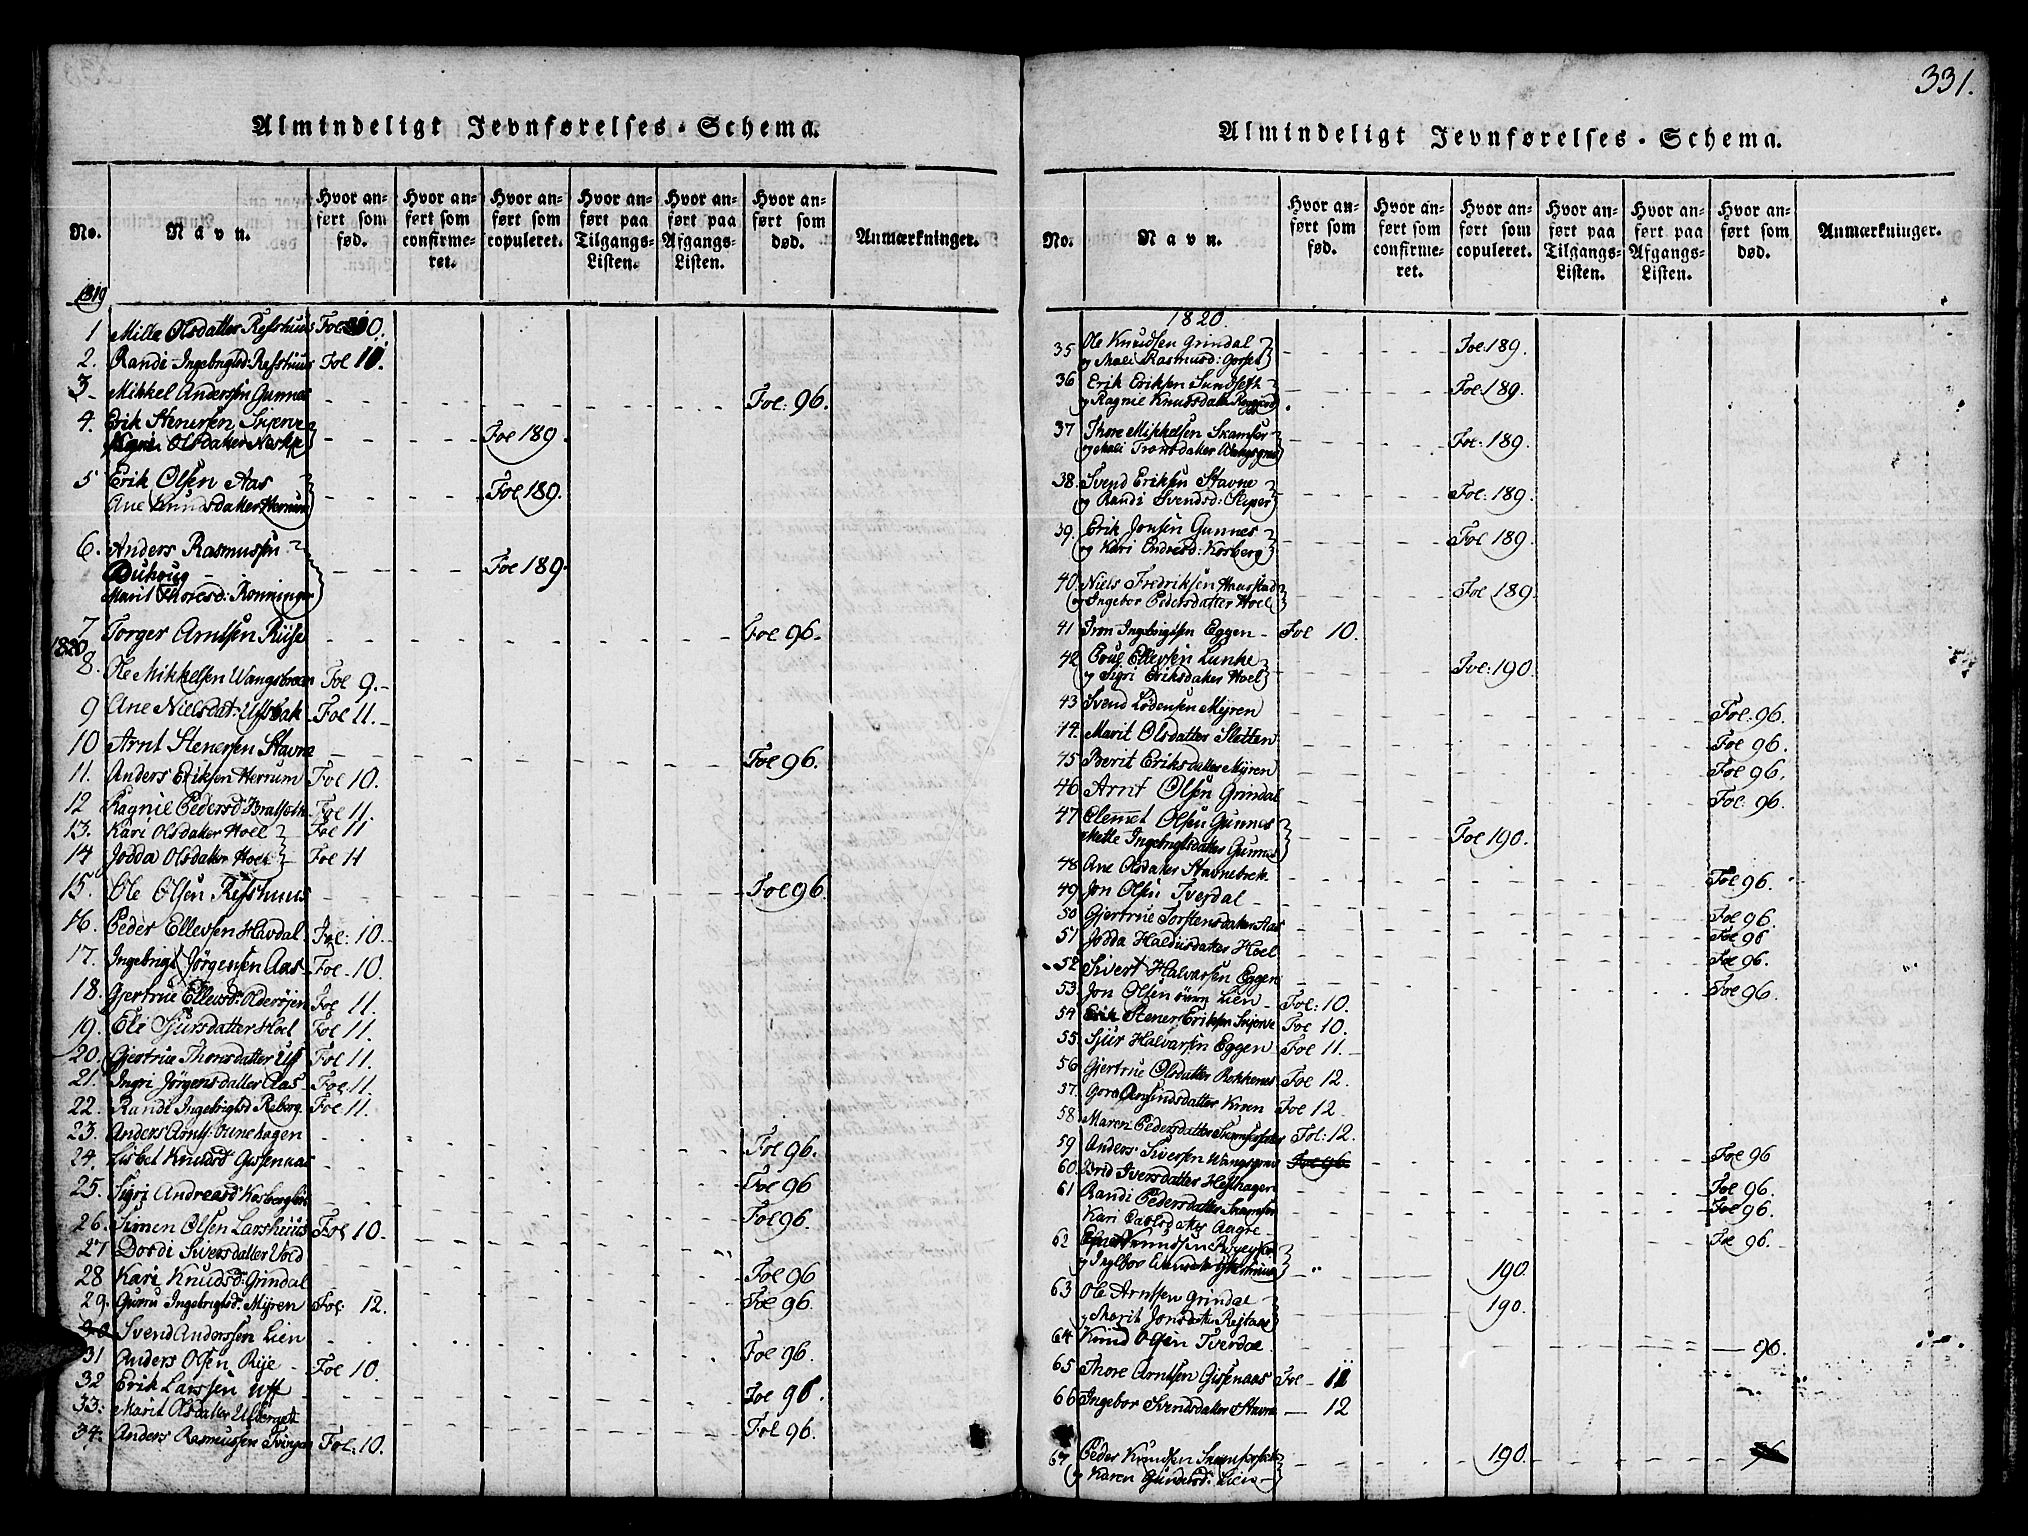 331.
Almindeligt Jevnførelses-Schema.
No.
Navn.
Hvor anført som fød.
Hvor anført som confirmeret.
Hvor anført som copuleret.
Hvor anført paa Tilgangs-Listen.
Hvor anført paa Afgangs-Listen.
Hvor anført som død.
Anmærkninger.
1819
1 Mille Olsdatter Refshuus Fol 10.
2. Randi Ingebrigtsd: Refshuus Fol 11.
3 Mikkel Andersen Gunnes Fol: 96.
4. Erik Stenersen Svijerve
Olsdatter Fol 189.
5 Erik Olsen Aas
Ane Knudsdatter Herrum Fol 189.
6. Anders Rasmussen
Duhoug
Marit Thoresd: Rønninger Fol 189.
7 Torger Arntsen Riise Fol 96.
1820
8. Ole Mikkelsen Fol 9.
9 Ane Nielsdat: Fol 11.
10 Arnt Stenersen Stavne Fol 96.
11. Anders Eriksen Herrum Fol 10.
12 Ragnil Pedersd: Bratseth Fol 11.
13. Kari Olsdatter Hoel Fol 11
14 Jodda Olsdatter Hoel Fol 11
15. Ole Olsen Refshuus Fol 96.
16. Peder Ellevsen Havdal Fol: 10.
17. Ingebrigt Jørgensen Aas Fol 10.
18. Gjertrue Ellevsd: Olderøjen Fol 11.
19. Eli Sjursdatter Hoel Fol 11.
20. Gjertrue Thoresdatter Uf Fol 11.
21. Ingri Jørgensdatter Aas Fol: 11.
22. Randi Ingebrigtsd Reberg Fol 11.
23. Anders Arntsen Fol 96.
24. Lisbet Knudsd: Gisenaas Fol 96
25. Sigri Andreasd Fol 96.
26. Simen Olsen Larshuus Fol 10.
27 Dordi Siversdatter Vold Fol 96
28 Kari Knudsd: Grindal Fol 96.
29. Guru Ingebrigtsd: Mÿren Fol: 12.
30 Svend Anderssen Lien Fol 96.
31 Anders Olsen Rije Fol 10.
32 Erik Larssen Uff Fol 96.
33: Marit Olsdatter Fol 96.
34. Anders Rasmussen Fol: 10.
Almindeligt Jevnførelses-Schema.
No.
Navn.
Hvor anført som fød.
Hvor anført som confirmeret.
Hvor anført som copuleret.
Hvor anført paa Tilgangs-Listen.
Hvor anført paa Afgangs-Listen.
Hvor anført som død.
Anmærkninger.
1820.
35 Ole Knudsen Grindal
og Mali Rasmusd: Gorset Fol: 189.
36 Erik Eriksen Sundseth
og Ragnil Knudsdatter Fol: 189.
37 Thore Mikkelsen Skamfer
og Mali Tronsdatter Fol: 189.
38. Svend Eriksen Stavne
og Randi Svendsd: Fol: 189.
39. Erik Jonsen Gunnes
og Kari Endresd: Korberg Fol 189.
40. Niels Fredriksen Haarstad
og Ingebor Pedersdatter Hoel Fol 189.
41 Tron Ingebrigtsen Eggen Fol 10.
42 Poul Ellevsen Lunke
og Sigri Eriksdatter Hoel Fol: 190.
43 Svend Lodensen Mÿren Fol: 96.
44. Marit Olsdatter Sletten Fol 96.
45 Berit Eriksdatter Mÿren Fol 96.
46 Arnt Olsen Grindal Fol: 96.
47 Clemet Olsen Gunnes
Mette Ingebrigtsdatter Gunnes Fol 190.
48. Ane Olsdatter Stavnebrek Fol 96.
49 Jon Olsen Tverdal Fol 96.
50 Gjertrue Torstensdatter Aas Fol 96
51 Jodda Haldusdatter Hoel Fol 96.
52 Sivert Halvorsen Eggen Fol 96.
53. Jon Olsen Lien Fol: 10.
54 Stener Eriksen Svijerve Fol 10.
55 Sjur Halvarsen Eggen Fol 11.
56 Gjertrue Olsdatter Fol 12.
57. Goro Amundsdatter Fol 12.
58 Maren Pedersdatter Fol: 12.
59 Anders Siversen Fol 96 Fol 96
60. Brid Iversdatter Hejlhagen Fol 96.
61 Randi Pedersdatter Fol 96.
Kari Aagre Fol 96.
62 Knudsen
og Ingebor 190.
63 Ole Arntsen Grindal
og Marit Jonsdatter 190.
64 Knud Olsen Tverdal 96.
65 Thore Arntsen Gissenaas Fol 11
66 Ingebor Svendsdatter Stavne 12
67 Peder Knudsen
og Karen Gundersd: Lien 190. 96